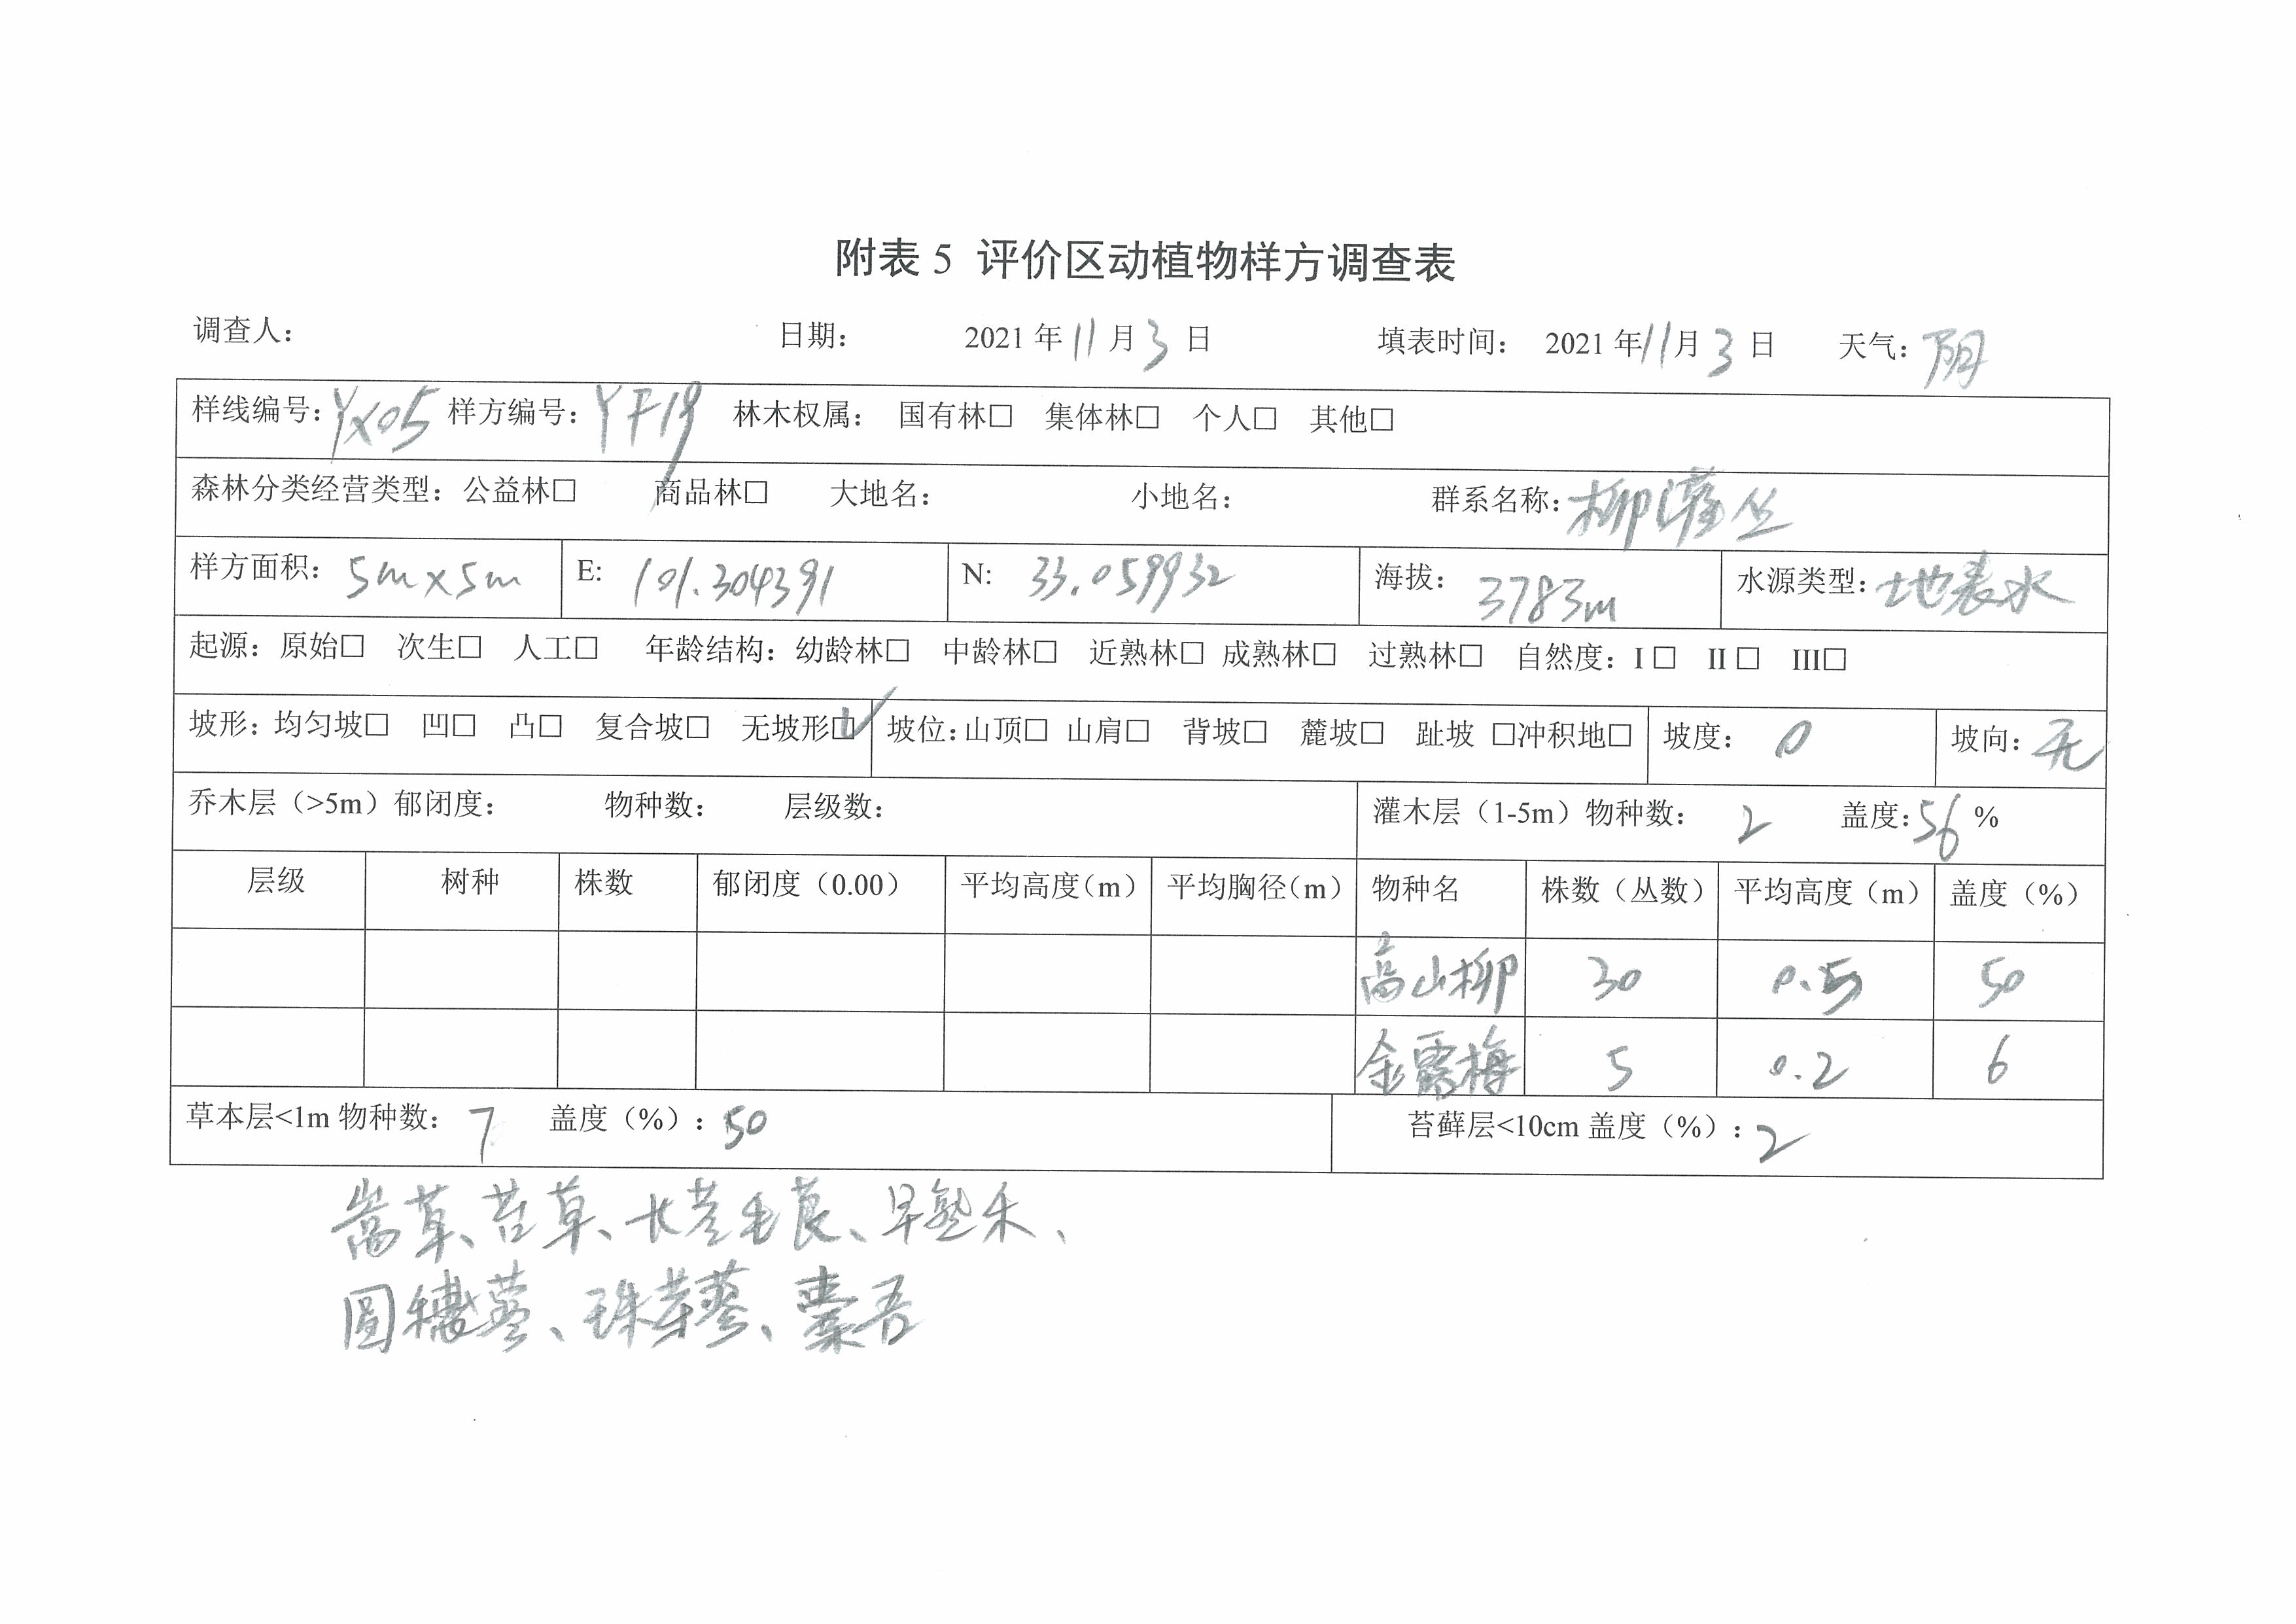 附表 5 评价区动植物样方调查表
调查人： 日期： 2021 年 11 月 3 日 填表时间： 2021 年 11 月 3 日 天气：阴
样线编号：YX05 样方编号：YF19 林木权属： 国有林□ 集体林□ 个人□ 其他□
森林分类经营类型：公益林□ 商品林□ 大地名： 小地名： 群系名称：柳灌丛
样方面积：5m×5m E: 101.304391 N: 33.059932 海拔：3783m 水源类型：地表水
起源：原始□ 次生□ 人工□ 年龄结构：幼龄林□ 中龄林□ 近熟林□ 成熟林□ 过熟林□ 自然度：I □ II □ III□
坡形：均匀坡□ 凹□ 凸□ 复合坡□ 无坡形☑ 坡位：山顶□ 山肩□ 背坡□ 麓坡□ 趾坡 □冲积地□ 坡度：0 坡向：无
乔木层（>5m）郁闭度： 物种数： 层级数： 灌木层（1-5m）物种数：2 盖度：56 %
层级 树种 株数 郁闭度（0.00） 平均高度（m） 平均胸径（m） 物种名 株数（丛数） 平均高度（m） 盖度（%）
高山柳 30 0.5 50
金露梅 5 0.2 6
草本层<1m 物种数：7 盖度（%）：50 苔藓层<10cm 盖度（%）：2
嵩草、苔草、长茎毛茛、早熟禾、
圆穗蓼、珠芽蓼、橐吾